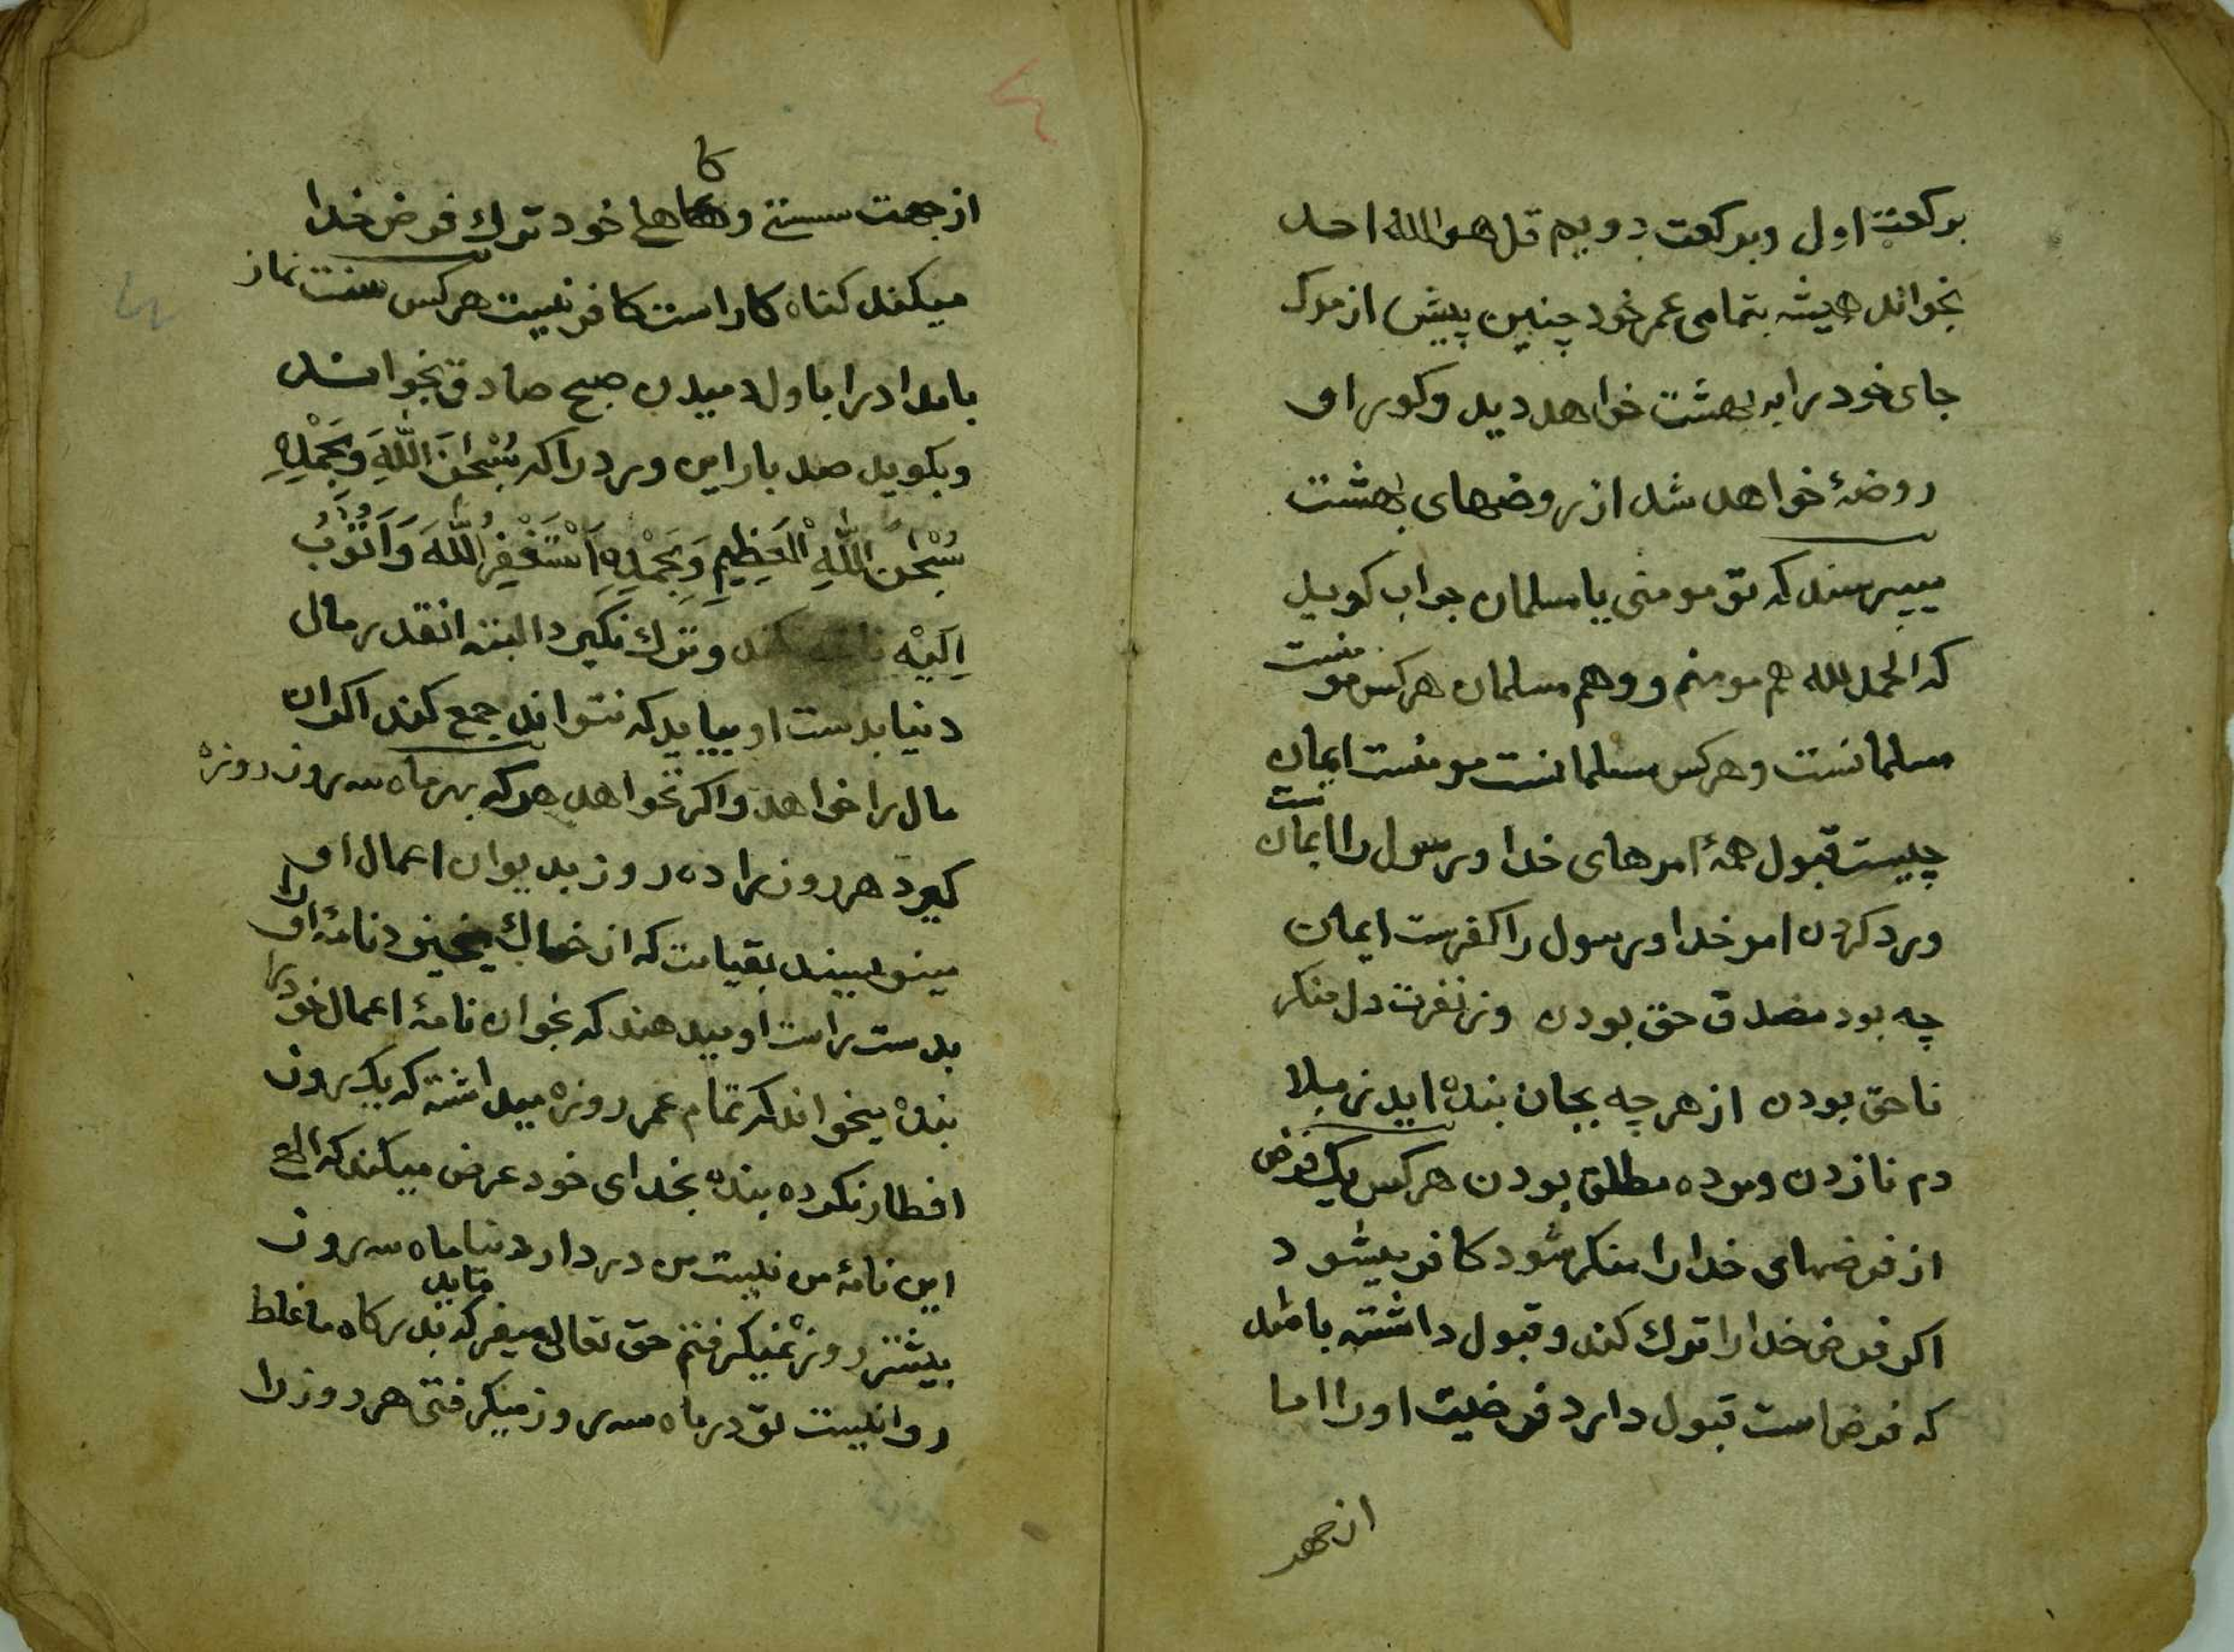 برکعت اول وبرکعت دویم قل هو الله احد
بخواند همیشه بتمامی عمر خود چنین پیش از مرک
جای خود را به بهشت خواهد دید وکور او
روضهٔ خواهد شد از روضهای بهشت
میپرسند که تو مومنی یا مسلمان جواب کوید
که الحمد لله هم مومنم و وهم مسلمان هرکس مومنست
مسلمانست وهرکس مسلمانست مومنست ایمان
چیست قبول همهٔ امرهای خدا ورسول را ایمانست
ورد کردن امر خدا ورسول را کفرست ایمان
چه بود مصدق حق بودن وز نفرت دل منکر
ناحق بودن از هر چه بجان بنده اید ز بلا
دم نازدن ومرده مطلق بودن هرکس یک فرض
از فرضهای خدا را منکر شود کافر میشود
اکر فرض خدا را ترك کند وقبول داشته باشد
که فرض است قبول دارد فرضیت اورا اما
از جهر
از جهت سستی و کاهلی خود ترك فرض خدا
میکند کناه کار است کافر نیست هرکس سنت نماز
بامداد را باول دمیدن صبح صادق بخواند
وبکوید صد بار این ورد را که سُبْحٰنَ اللّٰهِ وَبِحَمْدِهِ
سُبْحٰنَ اللّٰهِ الْعَظِیمِ وَبِحَمْدِهِ اَسْتَغْفِرُ اللّٰهَ وَاَتُوْبُ
اِلَیْهِ وترك نکیرد البته انقدر مال
دنیا بدست او بیاید که نتواند جمع کند اکر ان
مال را خواهد واکر نخواهد هر که بهر ماه سه روز روزه
کیرد هر روز را ده روز بدیوان اعمال او
مینویسند بقیامت که از خاك میخیزد نامهٔ او را
بدست راست او میدهند که بخوان نامهٔ اعمال خود را
بنده میخواند که تمام عمر روزه میداشته که یک روز
افطار نکرده بنده بخدای خود عرض میکند که الهی
این نامهٔ من نیست من در دار دنیا ماه سه روز
بیشتر روزه نمیکرفتم حق تعالی میفرماید که بدرکاه ما غلط
روا نیست تو در ماه سه روز میکرفتی هر روز را